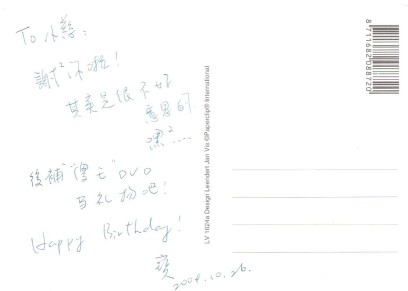 To 小蓉:
謝²你啦!
其實是很不好
意思的
嘿²....
後補"僵王"DVD
當礼物吧!
Happy Birthday!
寶
2004.10.26.
LV 1624a Design Leendert Jan Vis ©Paperclip® International
8711682088720